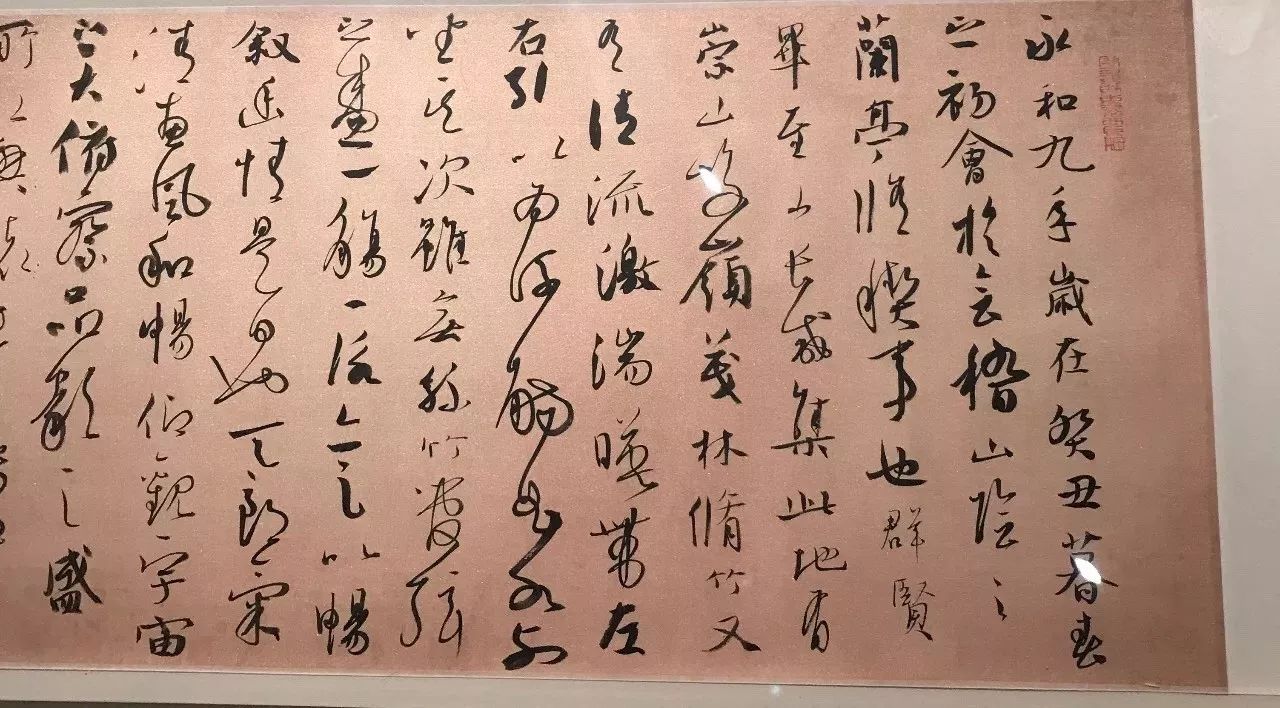 永和九年歲在癸丑暮春
之初會於会稽山陰之
蘭亭脩稧事也群賢
畢至少長咸集此地有
崇山峻嶺茂林脩竹又
有清流激湍暎帶左
右引以為流觴曲水列
坐其次雖無絲竹管弦
之盛一觴一詠亦足以暢
叙幽情是日也天朗氣
清惠風和暢仰觀宇宙
之大俯察品類之盛
所以